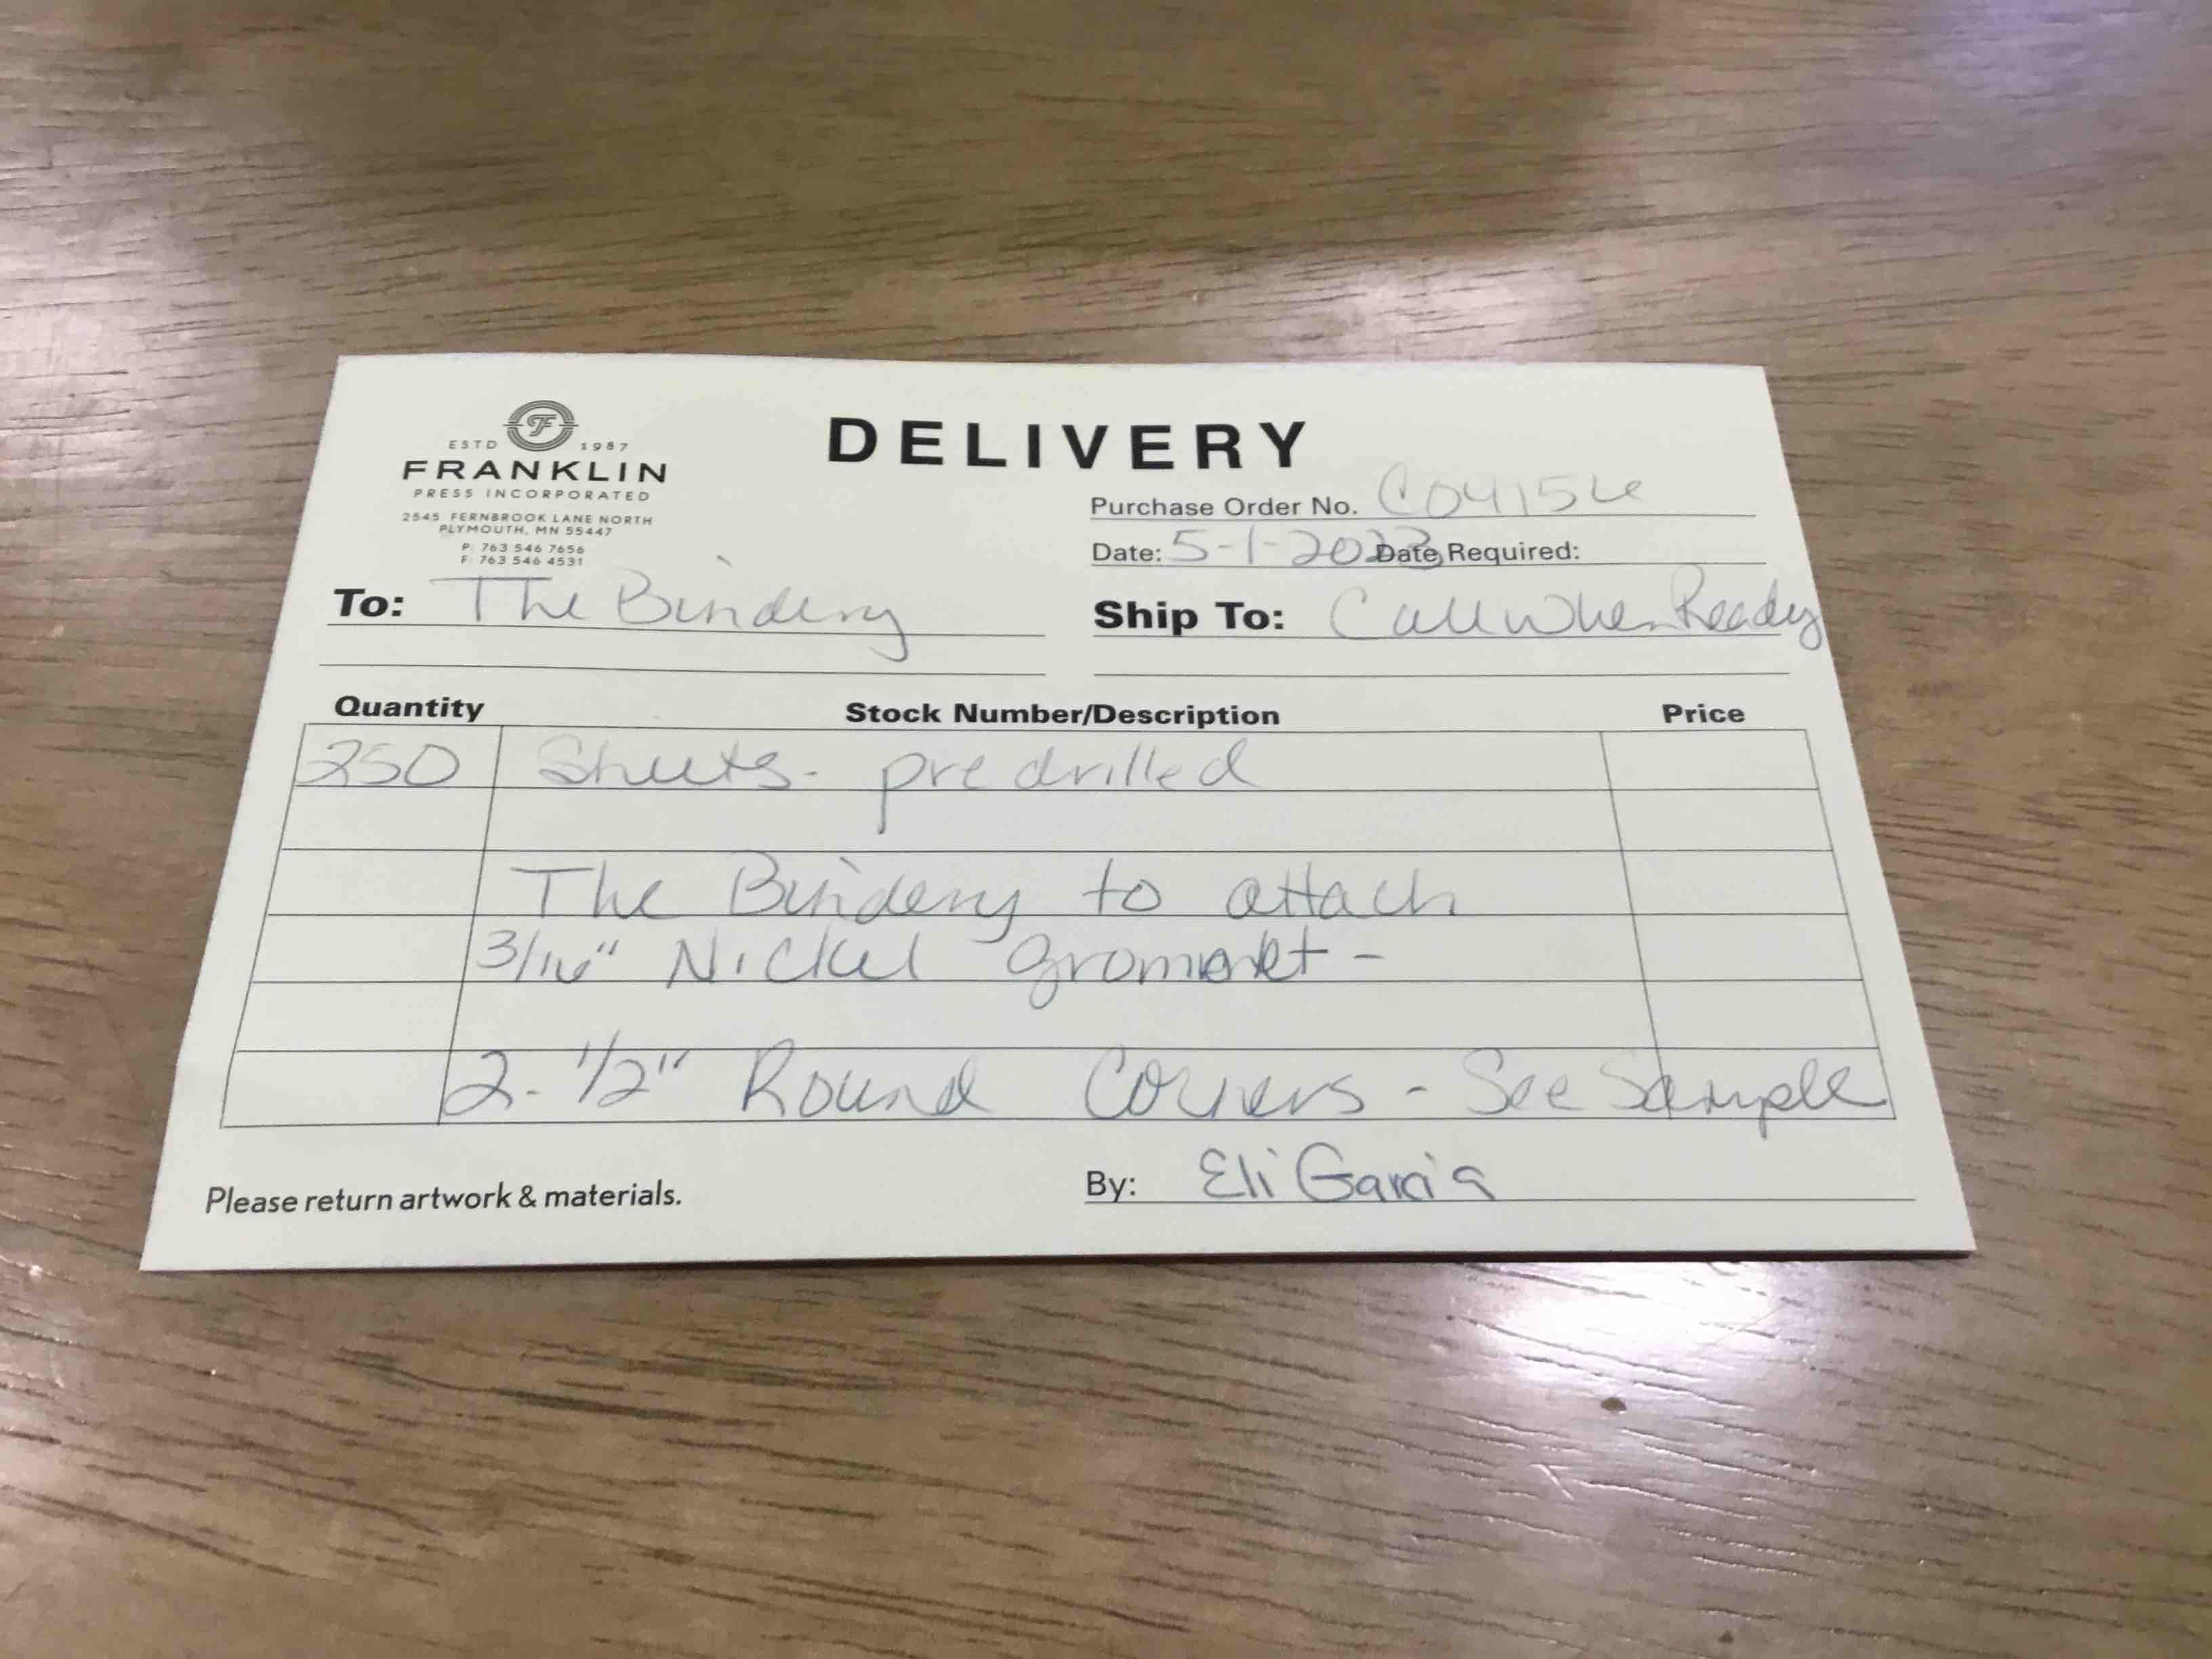 F
ESTD 1987
FRANKLIN
PRESS INCORPORATED
2545 FERNBROOK LANE NORTH
PLYMOUTH, MN 55447
P: 763 546 7656
F: 763 546 4531
DELIVERY
Purchase Order No. C04156
Date: 5-1-2023 Date Required:
To: The Bindery
Ship To: Call When Ready
Quantity Stock Number/Description Price
250 Sheets - pre drilled
The Bindery to attach
3/16" Nickel gromet -
2 - 1/2" Round Corners - See Sample
Please return artwork & materials.
By: Eli Garcia